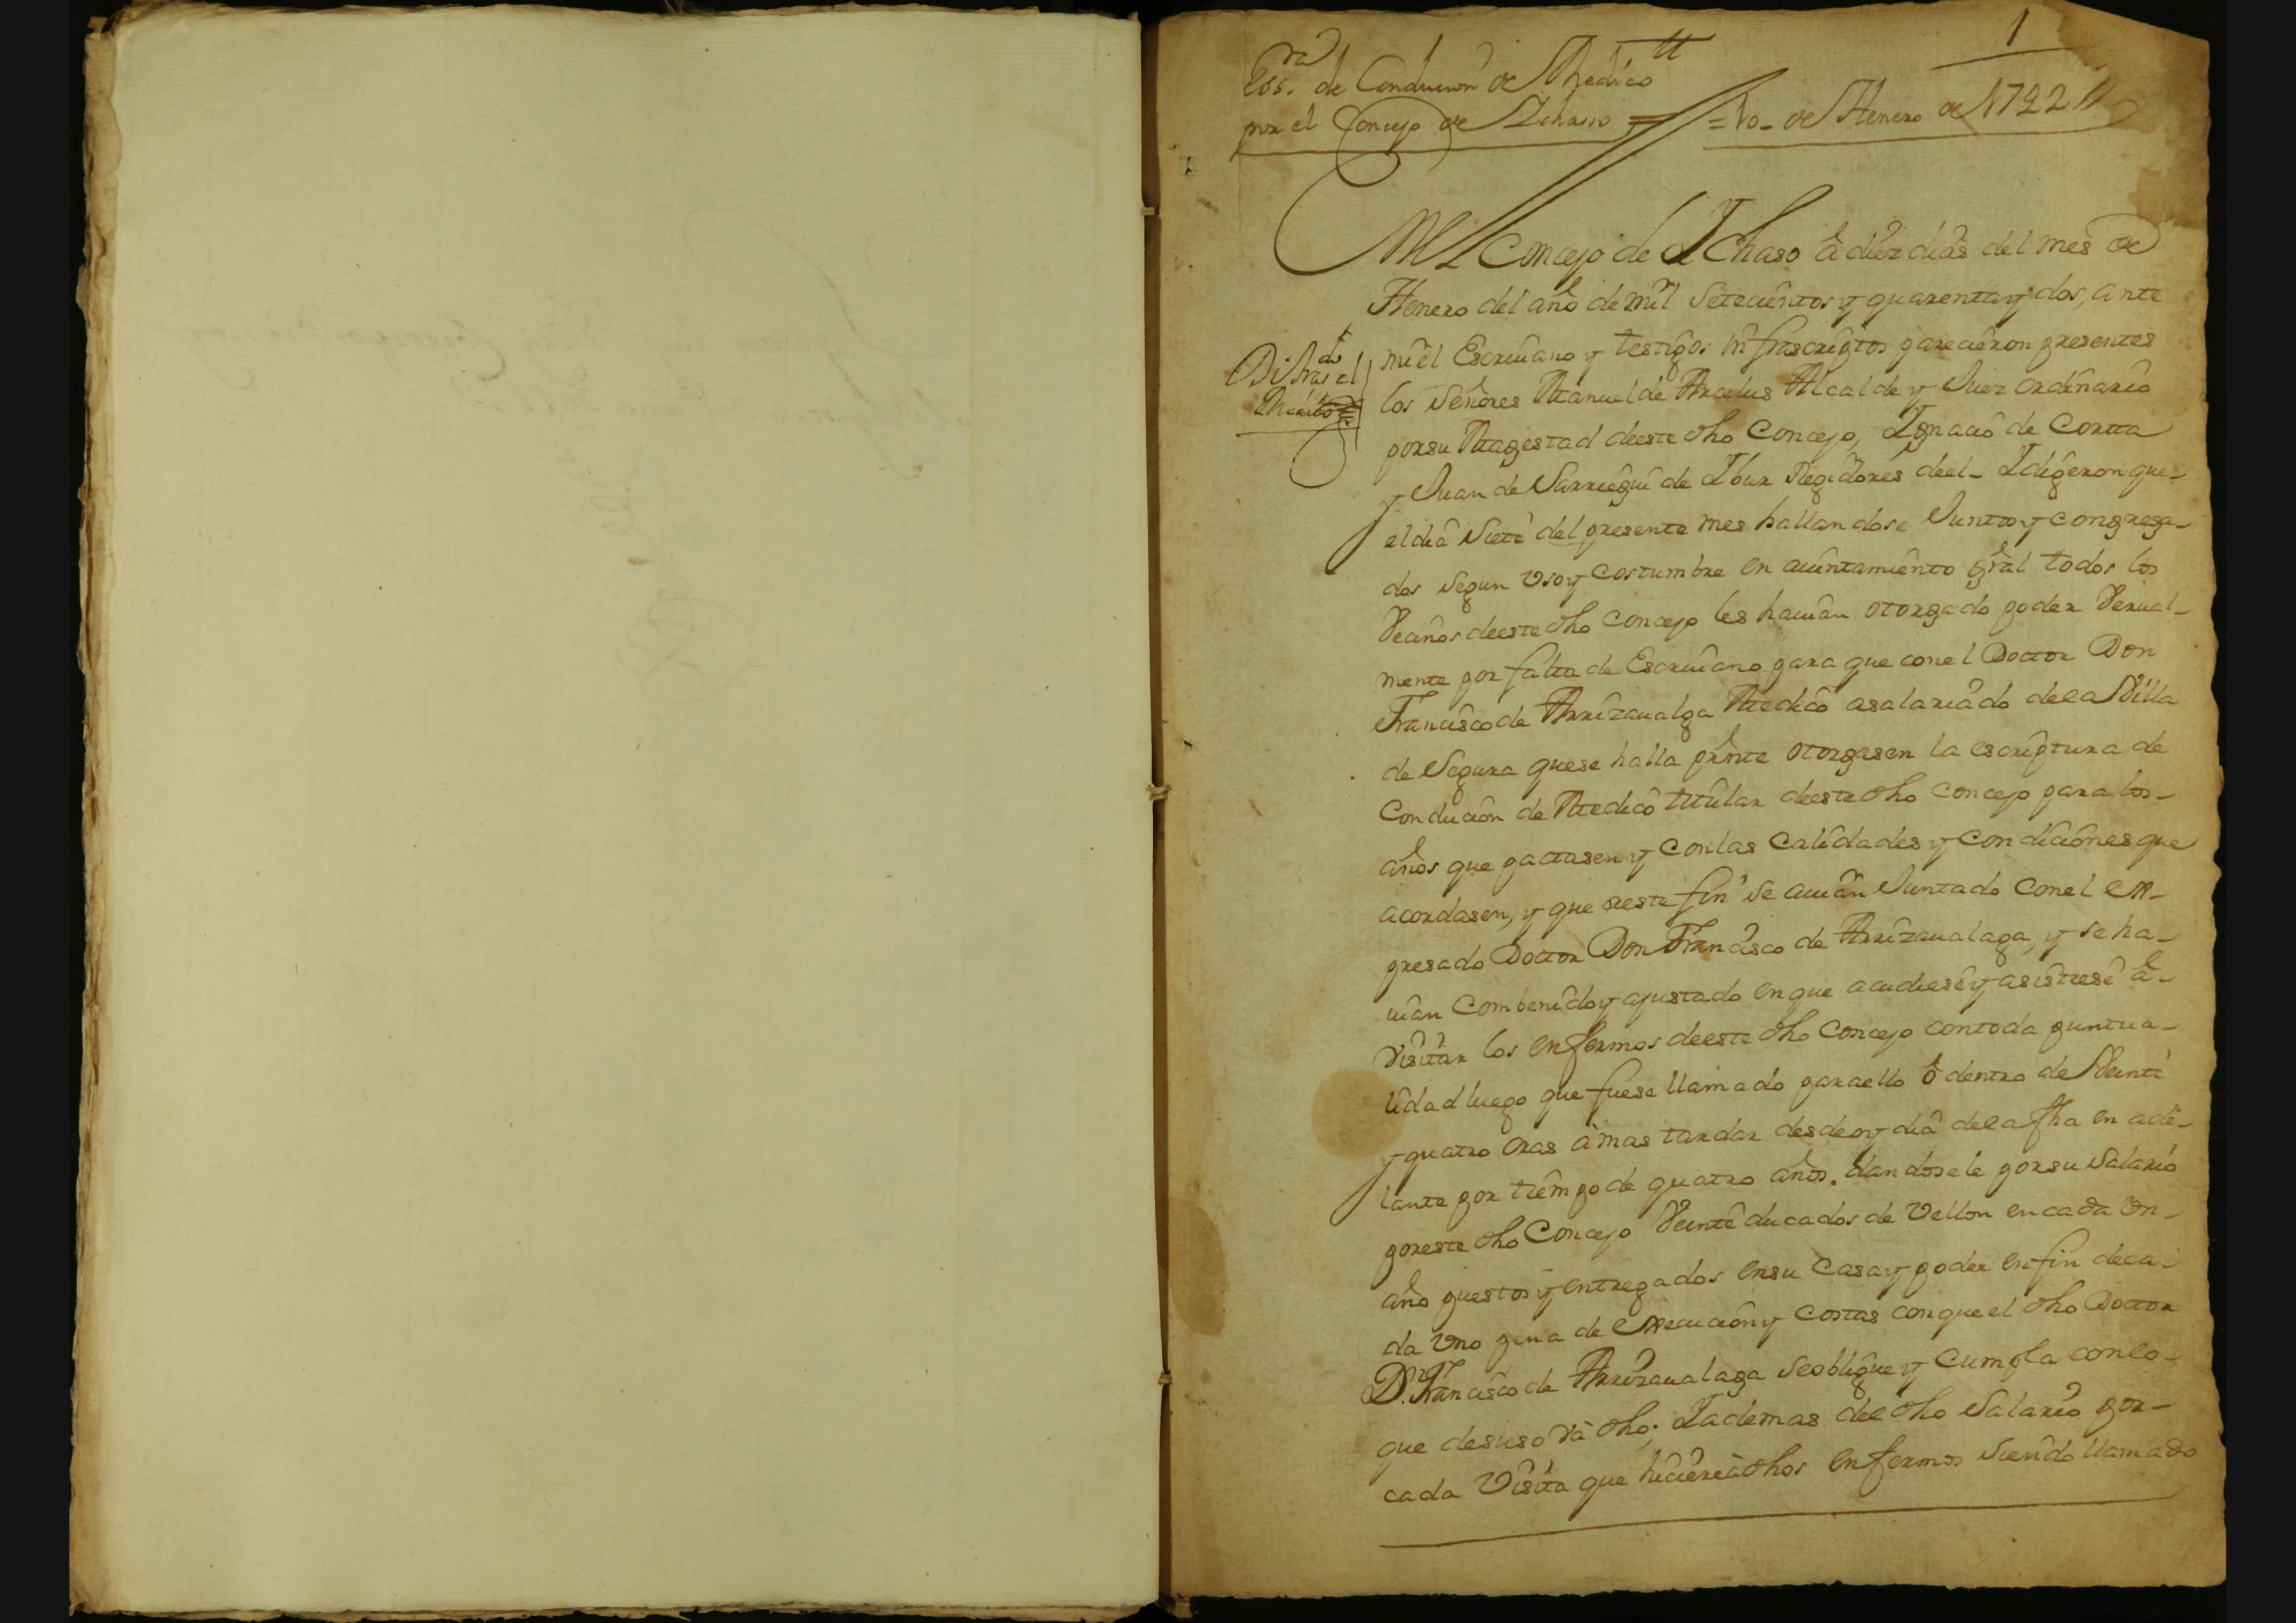 1
Ess.ra de Conducion de Medico
por el Concejo de Ichaso = = 10 - de Henero de 1742 //
En el Concejo de Ichaso à diez dias del mes de
Henero del año de mil setecientos y quarenta y dos, ante
mi el Escriuano y testigos infrascriptos parecieron presentes
los señores Manuel de Aracelus Alcalde y Juez ordinario
por su Magestad de este dho Concejo, Ignacio de Cortta
y Juan de Sarriegui de Ibur Regidores de el - I digeron que -
el dia siete del presente mes hallandose Juntos y congrega-
dos segun vso y costumbre en aiuntamiento gral todos los
Vecinos de este dho Concejo les hauian otorgado poder Verual-
mente por falta de Escriuano para que con el Doctor Don
Francisco de Arrizaualga Medico asalariado de la Villa
de Segura que se halla presnte otorgasen la escriptura de
Conducion de Medico titular de este dho Concejo para los -
años que pactasen y con las calidades y condiciones que
acordasen, y que a este fin se auian Juntado con el ex-
presado Doctor Don Francisco de Arrizaualaga, y se ha-
uian combenido y ajustado en que acudiese y asistiese à -
visitar los enfermos de este dho Concejo con toda puntua-
lidad luego que fuese llamado para ello ò dentro de Veinte
y quatro oras à mas tardar desde oy dia de la fha en ade-
lante por tiempo de quatro años. dandosele por su salario
por este dho Concejo Veinte ducados de Vellon en cada vn -
año puestos y entregados en su casa y poder en fin de ca-
da vno pena de execucion y costas con que el dho Doctor
Dn. Francisco de Arrizaualaga se obligue y cumpla con lo -
que desuso và dho; I ademas del dho salario por -
cada visita que hiciere à dhos enfermos siendo llamado